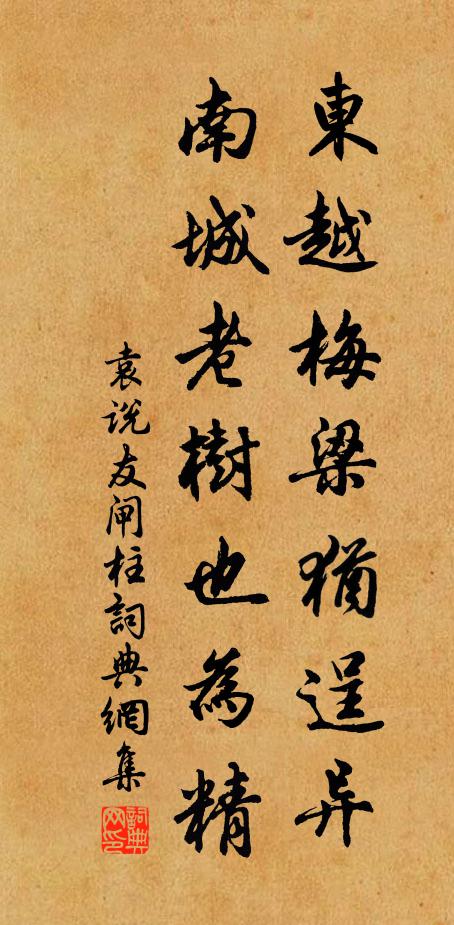 東越梅梁猶逞异
南城老樹也為精
袁说友闸柱詞典網集
詞典网印